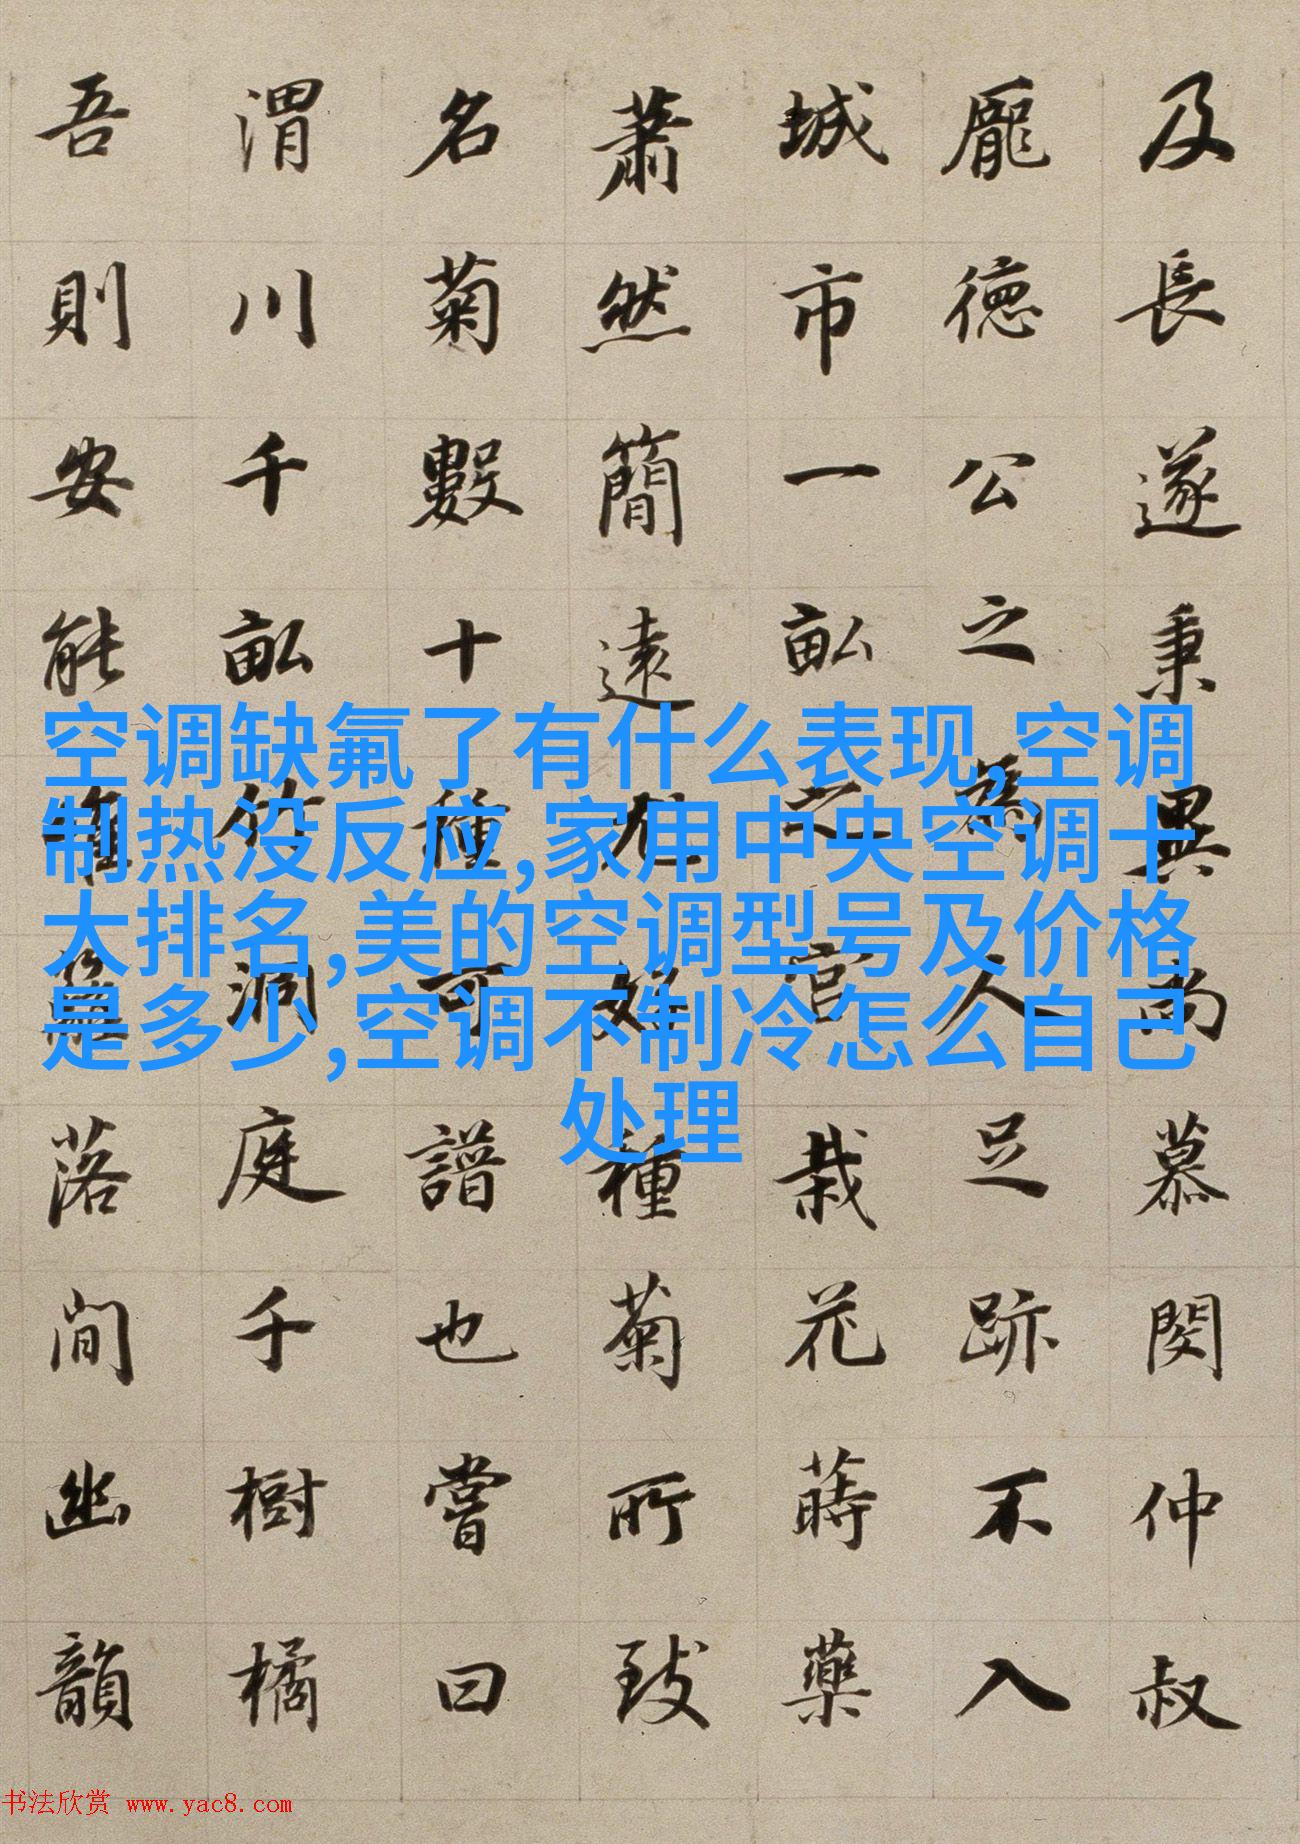 及長遂秉異慕閔仲叔
龐德公之為人足跡不入
城市一畝之宮栽花蒔藥
蕭然簡遠尤好種菊所致
名菊數十種可譜也嘗曰
渭川千畝竹洞庭千樹橘
吾則安能唯籬落間幽韻
空调缺氟了有什么表现,空调
制热没反应,家用中央空调十
大排名,美的空调型号及价格
是多少,空调不制冷怎么自己
处理
书法欣赏 www.yac8.com